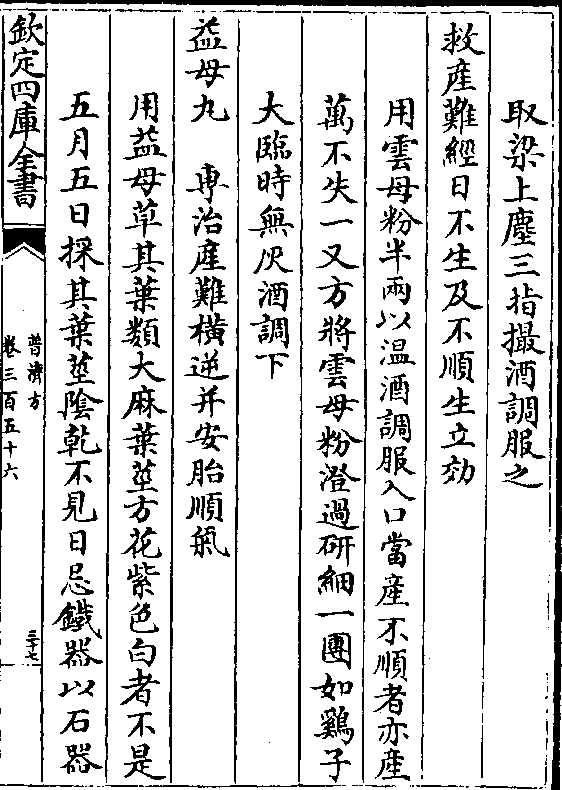 取梁上塵三指撮酒調服之
救産難經日不生及不順生立効
用雲母粉半兩以温酒調服入口當産不順者亦産
萬不失一又方將雲母粉澄過研細一團如鷄子
大臨時無灰酒調下
益母丸　専治産難横逆并安胎順氣
用益母草其葉類大麻葉莖方花紫色白者不是
五月五日採其葉莖陰乾不見日忌鐵器以石器
欽定四庫全書
普濟方
卷三百五十六
三十七